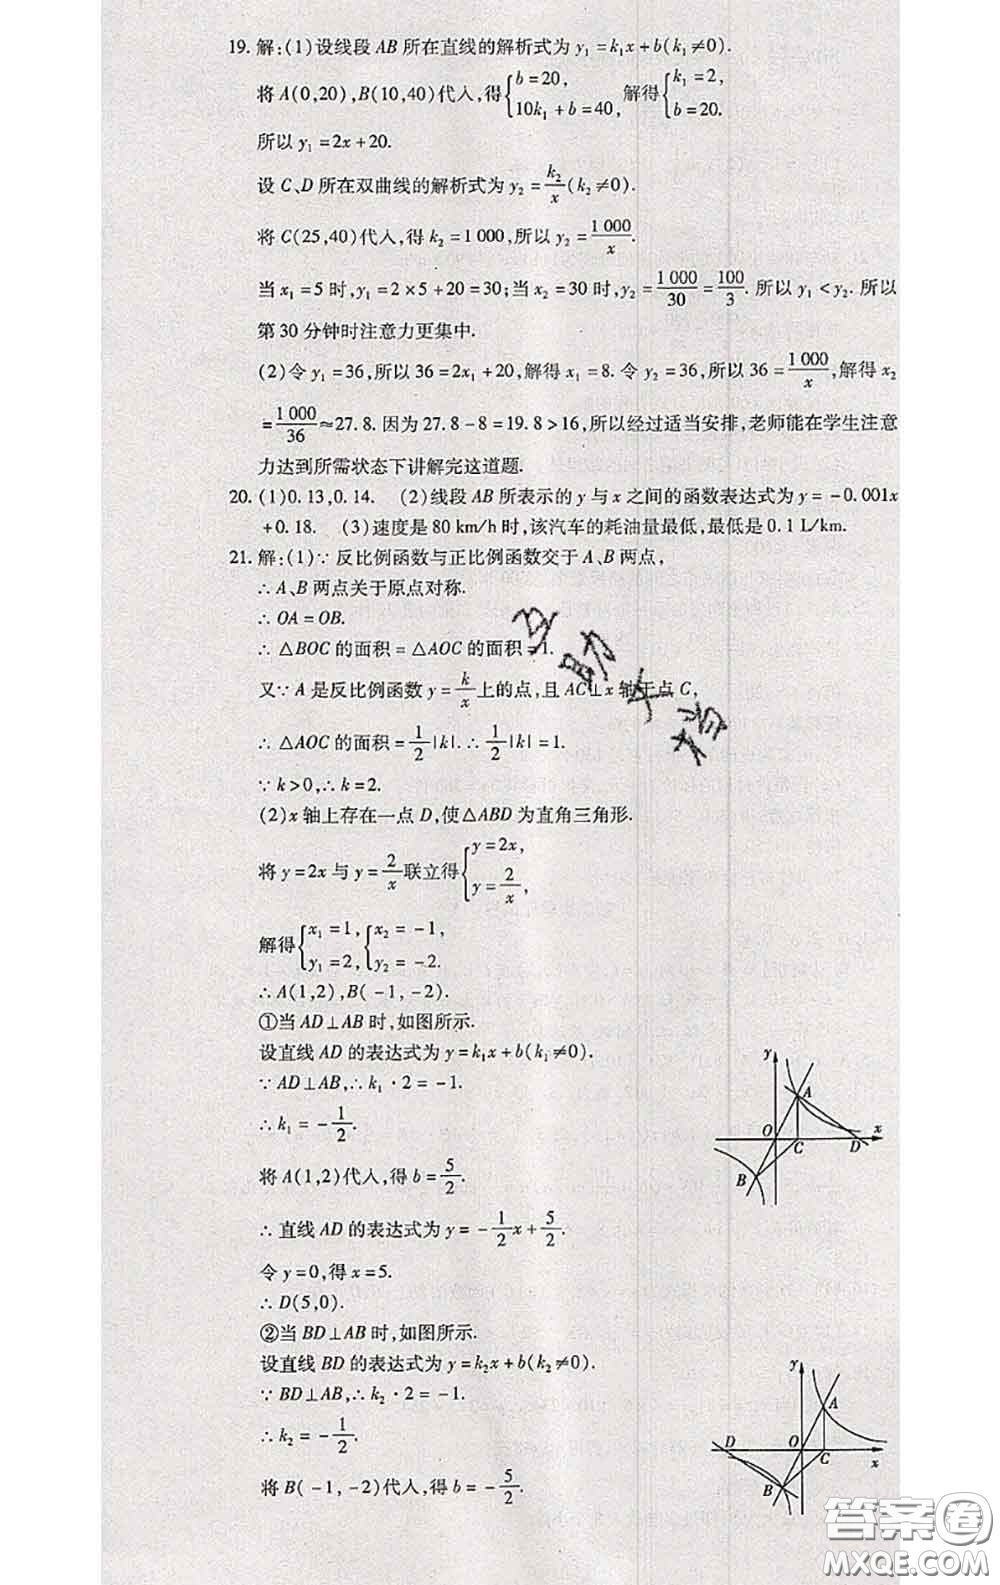 19. 解:(1)设线段 AB 所在直线的解析式为 y₁ = k₁x + b(k₁≠0).
将 A(0,20),B(10,40)代入,得{b = 20, 10k₁ + b = 40, 解得{k₁ = 2, b = 20.
所以 y₁ = 2x + 20.
设 C、D 所在双曲线的解析式为 y₂ = k₂/x (k₂≠0).
将 C(25,40)代入,得 k₂ = 1 000,所以 y₂ = 1 000/x.
当 x₁ = 5 时,y₁ = 2×5 + 20 = 30;当 x₂ = 30 时,y₂ = 1 000/30 = 100/3. 所以 y₁ < y₂. 所以
第 30 分钟时注意力更集中.
(2)令 y₁ = 36,所以 36 = 2x₁ + 20,解得 x₁ = 8. 令 y₂ = 36,所以 36 = 1 000/x,解得 x₂
= 1 000/36 ≈ 27.8. 因为 27.8 - 8 = 19.8 > 16,所以经过适当安排,老师能在学生注意
力达到所需状态下讲解完这道题.
20. (1)0.13,0.14. (2)线段 AB 所表示的 y 与 x 之间的函数表达式为 y = -0.001x
+0.18. (3)速度是 80 km/h 时,该汽车的耗油量最低,最低是 0.1 L/km.
21. 解:(1)∵ 反比例函数与正比例函数交于 A、B 两点,
∴ A、B 两点关于原点对称.
∴ OA = OB.
∴ △BOC 的面积 = △AOC 的面积 = 1.
又∵ A 是反比例函数 y = k/x 上的点,且 AC⊥x 轴于点 C,
∴ △AOC 的面积 = 1/2|k|. ∴ 1/2|k| = 1.
∵ k > 0,∴ k = 2.
(2)x 轴上存在一点 D,使△ABD 为直角三角形.
将 y = 2x 与 y = 2/x 联立得{y = 2x, y = 2/x,
解得{x₁ = 1, y₁ = 2, {x₂ = -1, y₂ = -2.
∴ A(1,2),B(-1,-2).
①当 AD⊥AB 时,如图所示.
设直线 AD 的表达式为 y = k₁x + b(k₁≠0).
∵ AD⊥AB,∴ k₁·2 = -1.
∴ k₁ = -1/2.
将 A(1,2)代入,得 b = 5/2.
∴ 直线 AD 的表达式为 y = -1/2x + 5/2.
令 y = 0,得 x = 5.
∴ D(5,0).
②当 BD⊥AB 时,如图所示.
设直线 BD 的表达式为 y = k₂x + b(k₂≠0).
∵ BD⊥AB,∴ k₂·2 = -1.
∴ k₂ = -1/2.
将 B(-1,-2)代入,得 b = -5/2.
y A O C D x B
y A D O C x B
答案圈
MXQE.COM